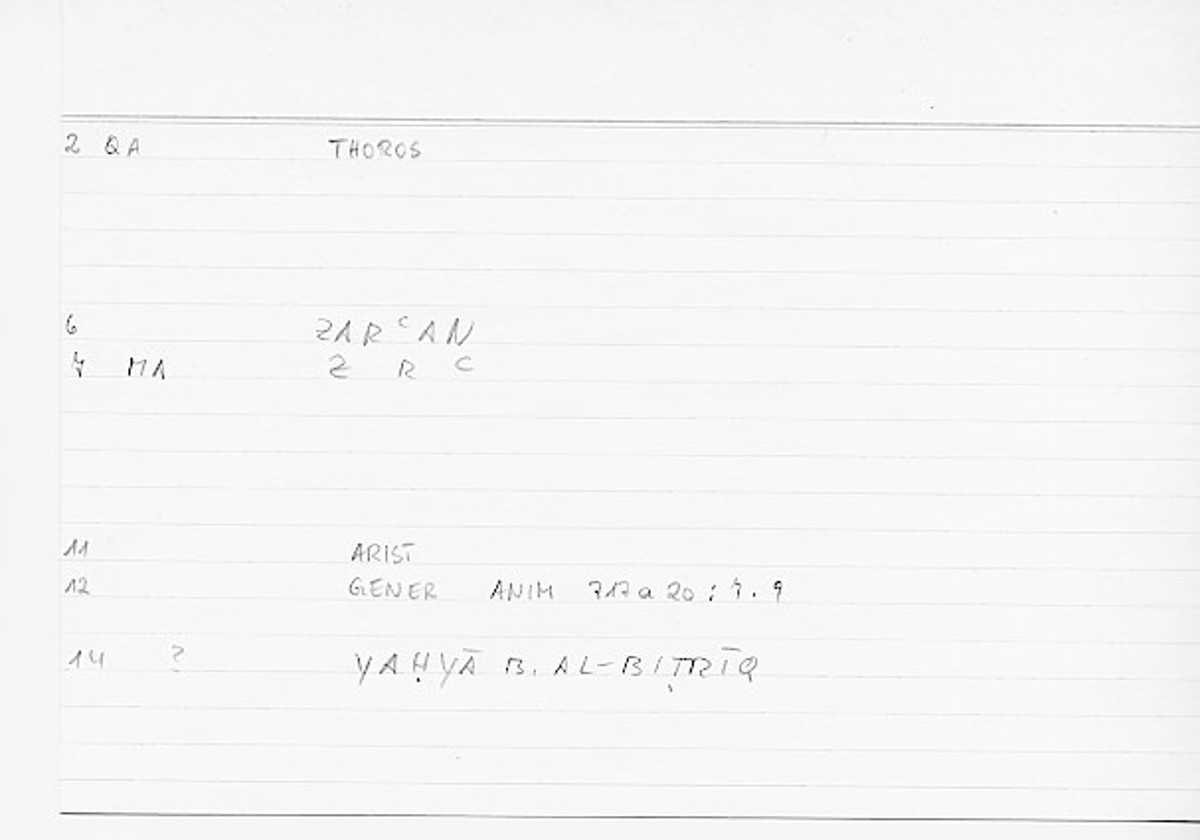 2 QA THOROS
6 ZARᶜAN
7 MA Z R ᶜ
11 ARIST
12 GENER ANIM 717a 20 ; 7. 9
14 ? YAḤYĀ B. AL-BIṬRĪQ